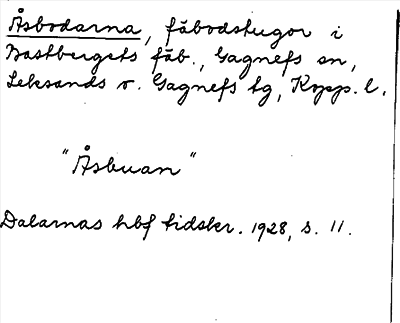 Åsbodarna, fäbodstugor i
Bastbergets fäb., Gagnefs sn,
Leksands o. Gagnefs tg, Kopp. l.
"Åsbuan"
Dalarnas hbf tidskr. 1928, s. 11.